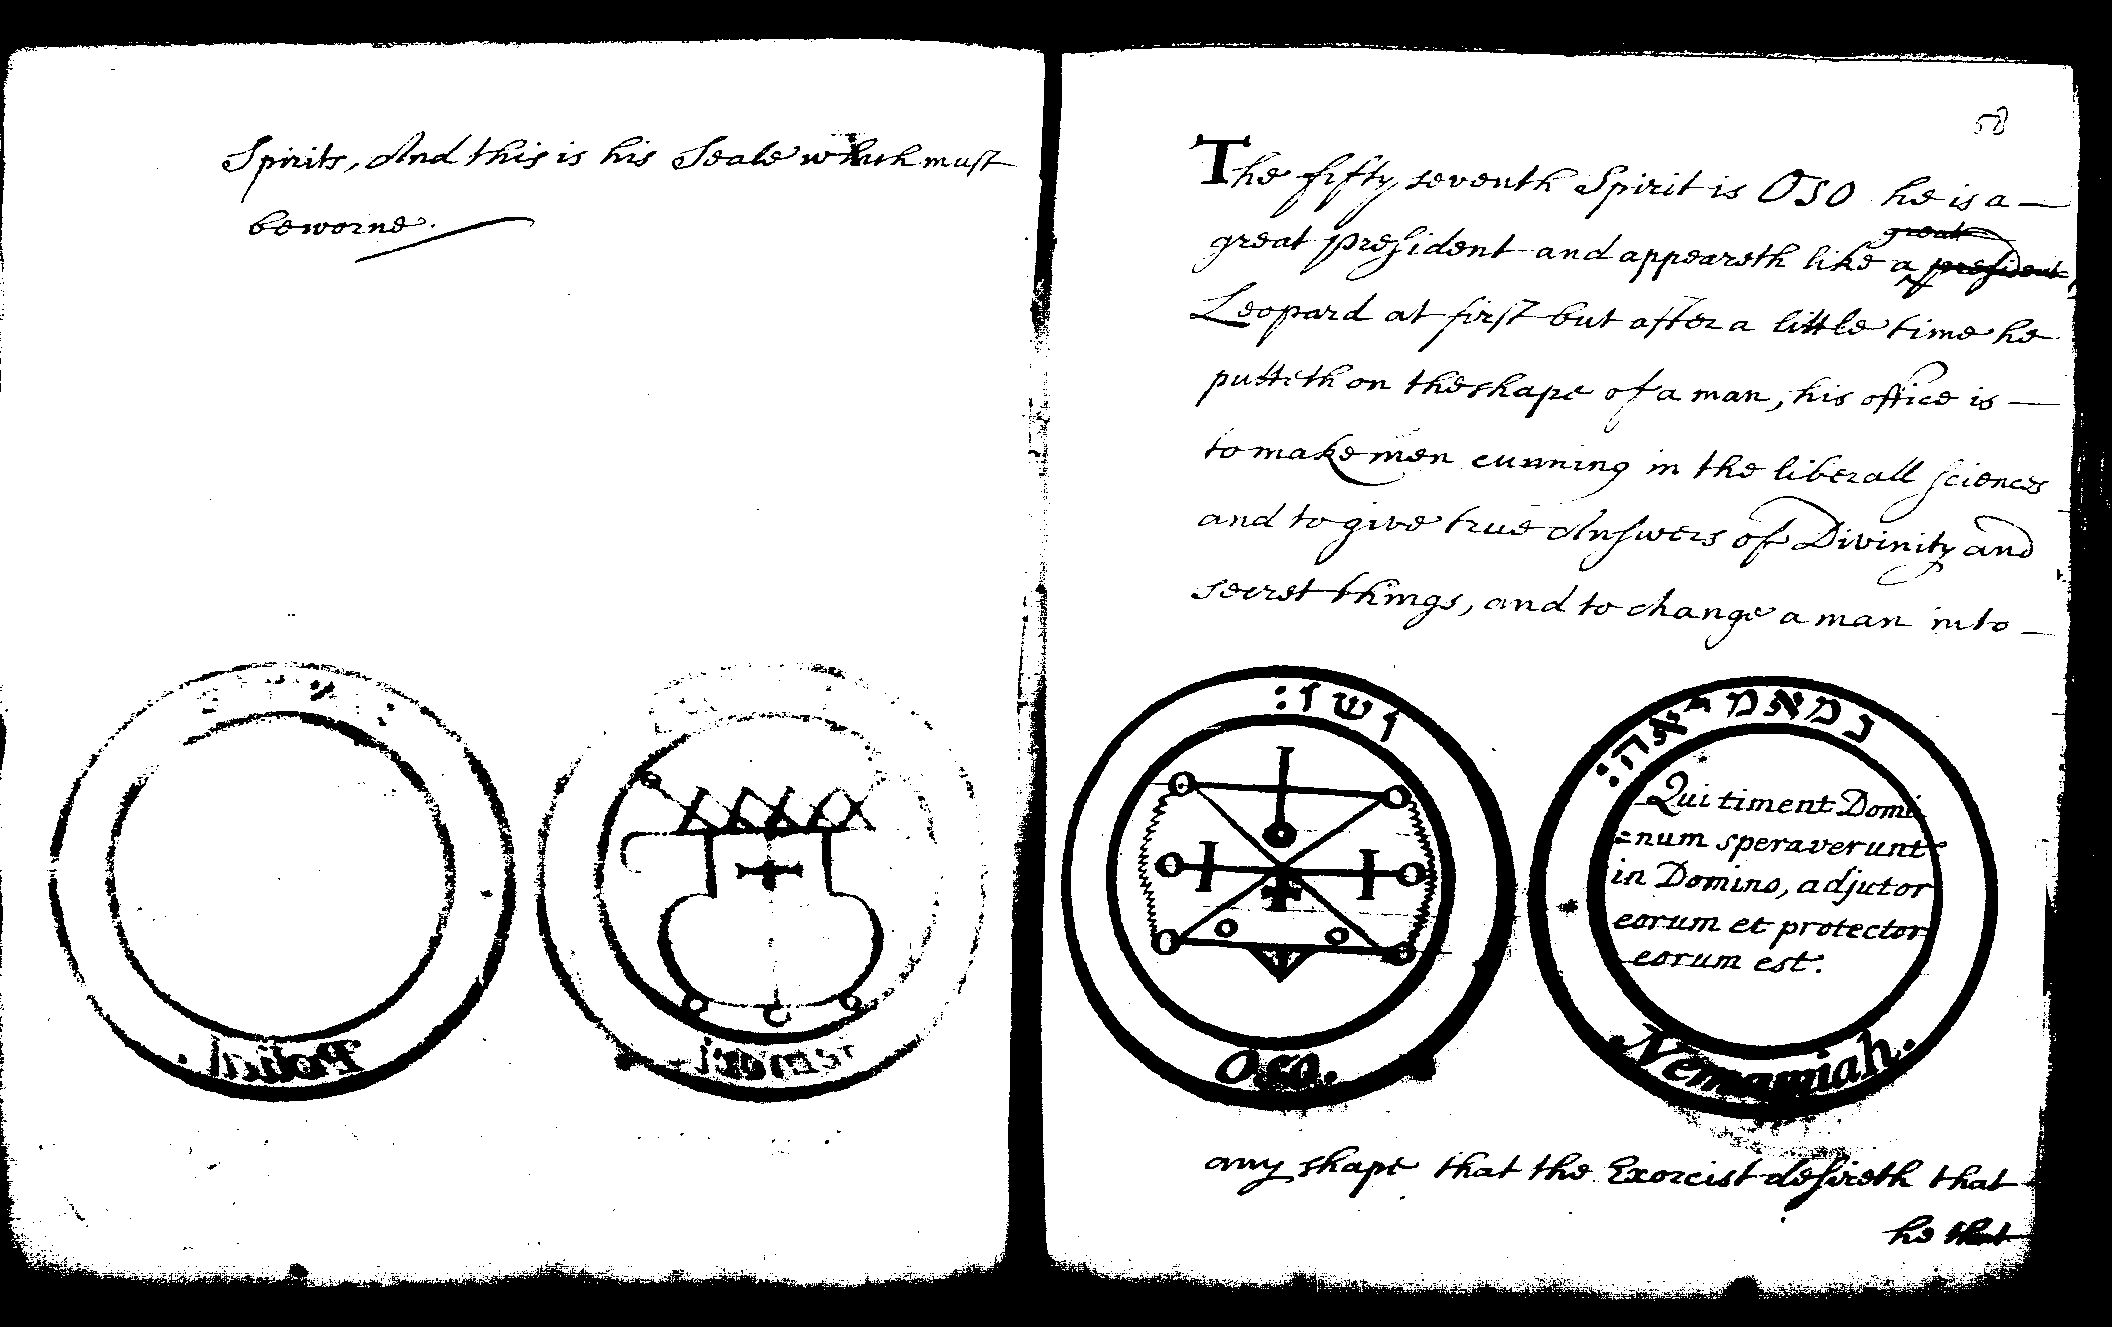 Spirits, And this is his Seale which must
be worne.
58
The fifty seventh Spirit is OSO he is a
great
great president and appeareth like a president
Leopard at first but after a little time he
putteth on the shape of a man, his office is
to make men cunning in the liberall sciences
and to give true Answers of Divinity and
secret things, and to change a man into
ושו:
Oso.
נמאמיאה:
Qui timent Domi
=num speraverunt
in Domino, adjutor
eorum et protector
eorum est.
.Nemamiah.
any shape that the Exorcist desireth that
he that